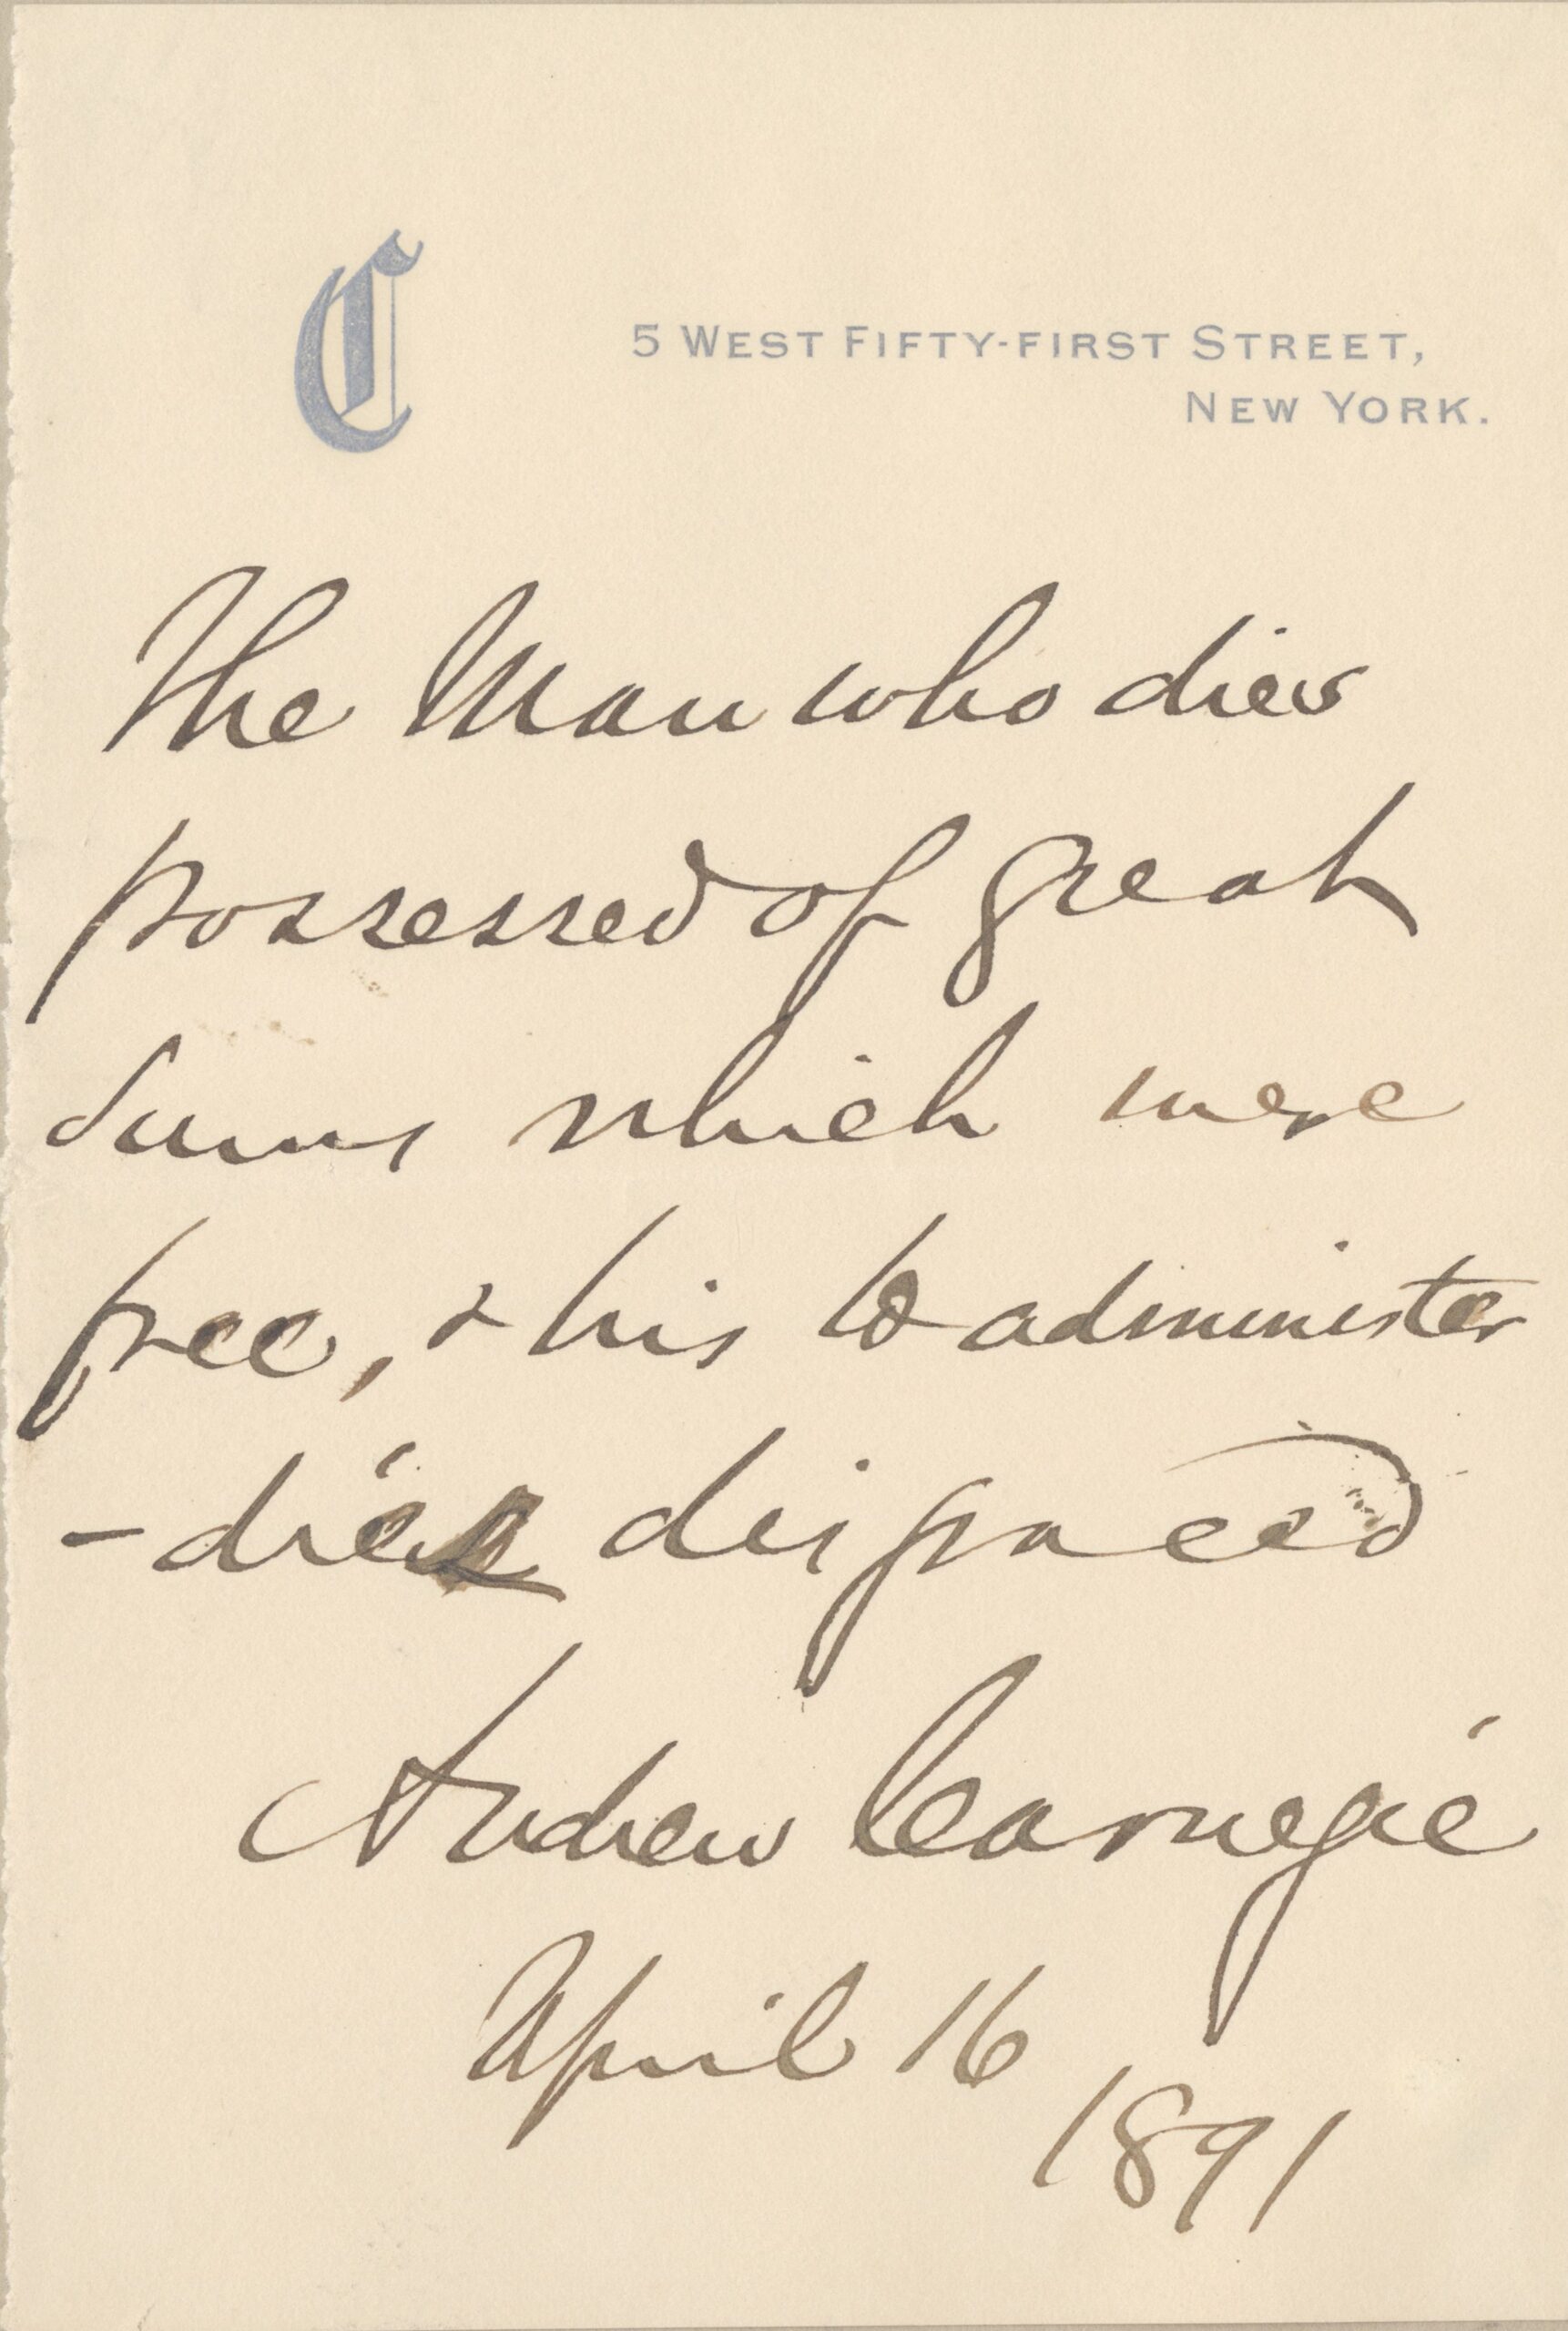 C
5 WEST FIFTY-FIRST STREET,
NEW YORK.
The Man who dies
possessed of great
sums which were
free, & his to administer
- dies disgraced
Andrew Carnegie
April 16
1891